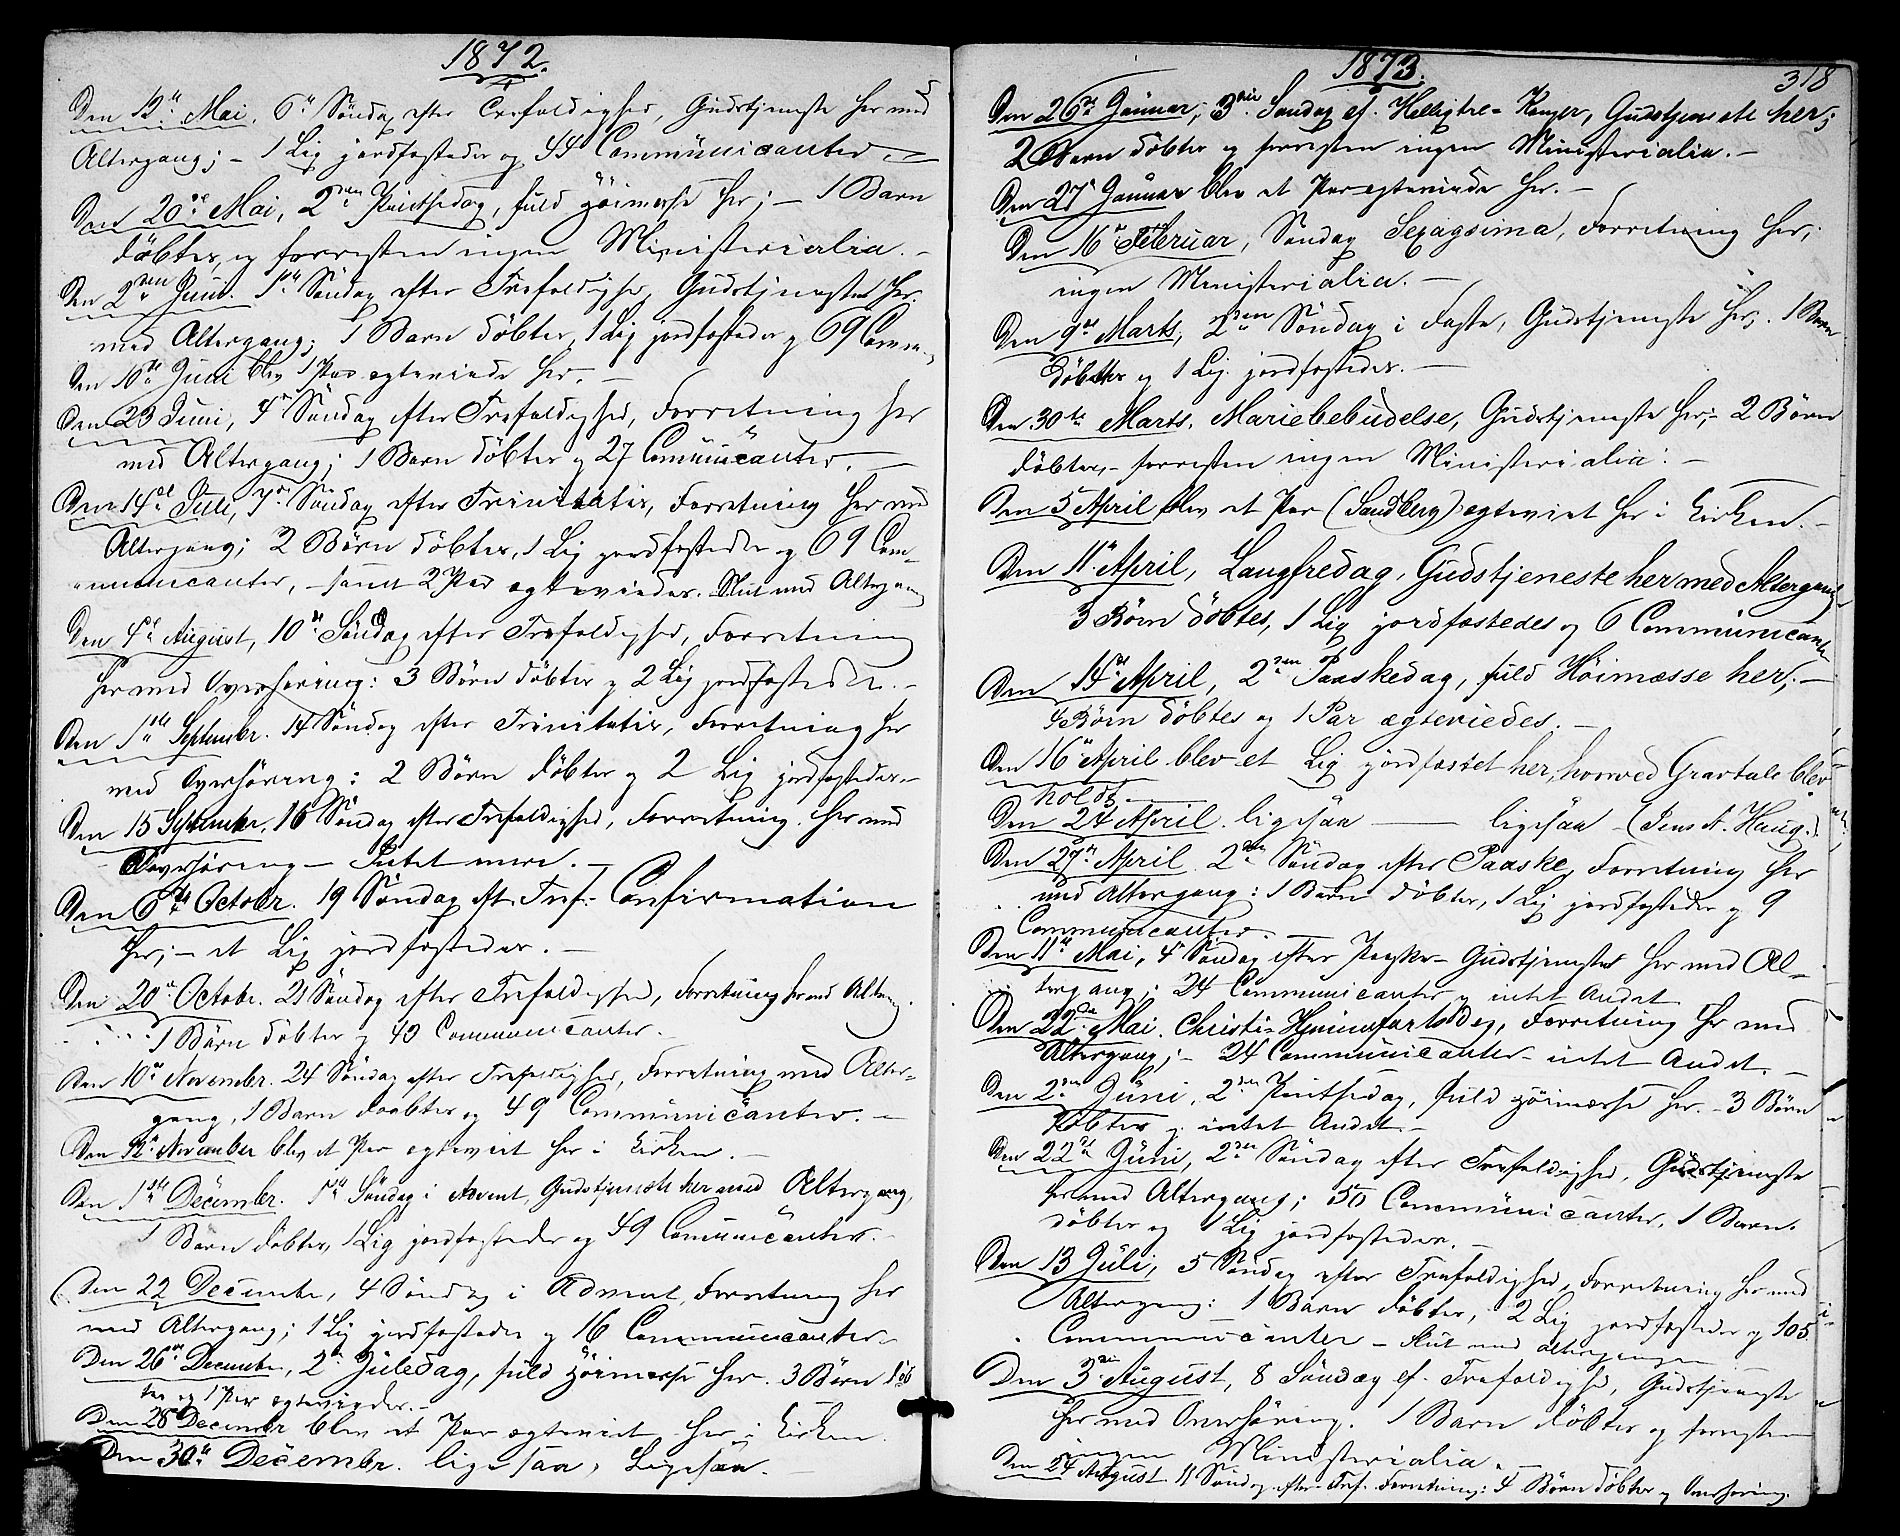 1872.
Den 12te Mai, 6te Söndag efter Trefoldighed, Gudstjeneste her med
Altergang; – 1 Lig jordfæstedes og 44 Communicanter. –
Den 20de Mai, 2den Pintsedag, fuld Höimesse her; – 1 Barn
döbtes, og forresten ingen Ministerialia. –
Den 2den Juni. 1ste Söndag efter Trefoldighed, Gudstjeneste her
med Altergang; 1 Barn döbtes, 1 Lig jordfæstedes og 69 Comm.
Den 16de Juni blev 1 Par egteviede her. –
Den 23 Juni, 4de Söndag efter Trefoldighed, Forretning her
med Altergang; 1 Barn döbtes og 27 Communicanter. –
Den 14de Juli, 7de Söndag efter Trinitatis, Forretning her med
Altergang; 2 Börn döbtes, 1 Lig jordfæstedes og 69 Com-
municanter, – samt 2 Par egteviedes. Slut med Altergang
Den 4de August, 10de Söndag efter Trefoldighed, Forretning
her med Overhöring: 3 Börn döbtes og 2 Lig jordfæstedes. –
Den 1ste Septembr. 14 Söndag efter Trinitatis, Forretning her
med Overhöring: 2 Börn döbtes og 2 Lig jordfæstedes. –
Den 15 Septembr. 16 Söndag efter Trefoldighed, Forretning her med
Overhöring – Intet mere. –
Den 6te Octobr. 19 Söndag eft. Tref. – Confirmation
her; – et Lig jordfæstedes. –
Den 20de Octobr. 21 Söndag efter Trefoldighed, Forretning her med Alterg.
1 Barn döbtes og 43 Communicanter.
Den 10de Novembr. 24 Söndag efter Trefoldighed, Forretning med Alter-
gang, 1 Barn döbtes og 49 Communicanter. –
Den 12te November blev et Par egteviet her i Kirken. –
Den 1ste Decembr. 1ste Söndag i Advent, Gudstjeneste her med Altergang,
1 Barn döbtes, 1 Lig jordfæstedes og 49 Communicanter. –
Den 22 Decembr, 4 Söndag i Advent, Forretning her
med Altergang; 1 Lig jordfæstedes og 16 Communicanter. –
Den 26de Decembr, 2den Juledag, fuld Höimesse her. 3 Börn döb-
tes og 1 Par egteviedes. –
Den 28 Decembr blev et Par egteviet her i Kirken
Den 30te Decembr. ligesaa, Ligesaa. –
1873.
318
Den 26de Januar, 3die Söndag ef. Helligtre-Konger, Gudstjeneste her;
2 Barn döbtes og forresten ingen Ministerialia. –
Den 27de Januar blev et Par egteviede her. –
Den 16de Februar, Söndag Sexagsima, Forretning her,
ingen Ministerialia. –
Den 9de Marts, 2den Söndag i Faste, Gudstjeneste her, 1 Barn
döbtes og 1 Lig jordfæstedes. –
Den 30te Marts. Mariebebudelse, Gudstjeneste her; 2 Börn
döbtes, – forresten ingen Ministerialia. –
Den 5 April blev et Par (Sandberg) egteviet her i Kirken. –
Den 11te April, Langfredag, Gudstjeneste her med Altergang
3 Börn döbtes, 1 Lig jordfæstedes og 6 Communicanter
Den 14de April, 2den Paaskedag, fuld Höimæsse her; –
4 Börn döbtes og 1 Par ægteviedes. –
Den 16de April blev et Lig jordfæstet her, hvorved Gravtale blev
holdt. –
Den 24 April. ligesaa – ligesaa (Jens A. Haug.)
Den 27de April 2den Söndag efter Paaske, Forretning her
med Altergang: 1 Barn döbtes, 1 Lig jordfæstedes og 9
Communicanter. –
Den 11te Mai, 4de Söndag efter Paaske – Gudstjeneste her med Al-
tergang; 24 Communicanter og intet Andet
Den 22de Mai. Christi-Himmelfartsdag, Forretning her med
Altergang; – 24 Communicanter – intet Andet. –
Den 2den Juni, 2den Pintsedag, fuld Höimesse her. – 3 Börn
döbtes og intet Andet. –
Den 22de Juni, 2den Söndag efter Trefoldighed, Gudstjeneste
her med Altergang; 50 Communicanter, 1 Barn
döbtes og 1 Lig jordfæstedes. –
Den 13 Juli, 5 Söndag efter Trefoldighed, Forretning her med
Altergang: 1 Barn döbtes, 2 Lig jordfæstedes og 105
Communicanter – Slut med altergangen
Den 3die August, 8 Söndag ef. Trefoldighed, Gudstjeneste
her med Overhöring. 1 Barn döbtes og forresten
ingen Ministerialia. –
Den 24 August 11 Söndag efter Tref. Forretning: 4 Börn döbtes og Overhöring.